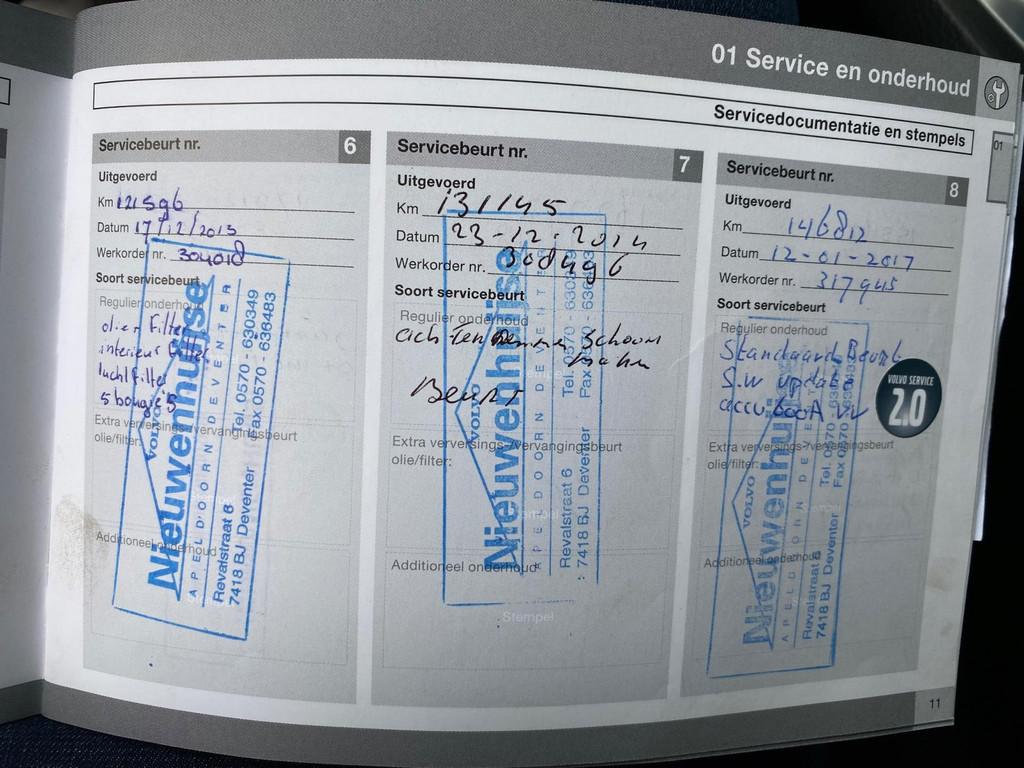 01 Service en onderhoud
Servicedocumentatie en stempels
01
Servicebeurt nr. 6
Uitgevoerd
Km 121596
Datum 17/12/2013
Werkorder nr. 304018
Soort servicebeurt
Regulier onderhoud
olier Filter
interieur Filter
luchtfilter
5 bougie's
Extra verversings-/vervangingsbeurt
olie/filter:
Additioneel onderhoud
VOLVO
Nieuwenhuijse
APELDOORN DEVENTER
Revalstraat 6 Tel. 0570 - 630349
7418 BJ Deventer Fax 0570 - 636483
Servicebeurt nr. 7
Uitgevoerd
Km 131145
Datum 23-12-2014
Werkorder nr. 308496
Soort servicebeurt
Regulier onderhoud
Beurt
Extra verversings-/vervangingsbeurt
olie/filter:
Additioneel onderhoud
Stempel
VOLVO
Nieuwenhuijse
APELDOORN DEVENTER
Revalstraat 6 Tel. 0570 - 630
7418 BJ Deventer Fax 0570 - 636
Servicebeurt nr. 8
Uitgevoerd
Km 146812
Datum 12-01-2017
Werkorder nr. 317945
Soort servicebeurt
Regulier onderhoud
Standaard Beurt
S.w update
accu 600A
VOLVO SERVICE
2.0
Extra verversings-/vervangingsbeurt
olie/filter:
Additioneel onderhoud
VOLVO
Nieuwenhuij
APELDOORN DEVE
Revalstraat 6 Tel. 0570
7418 BJ Deventer Fax 0570
11